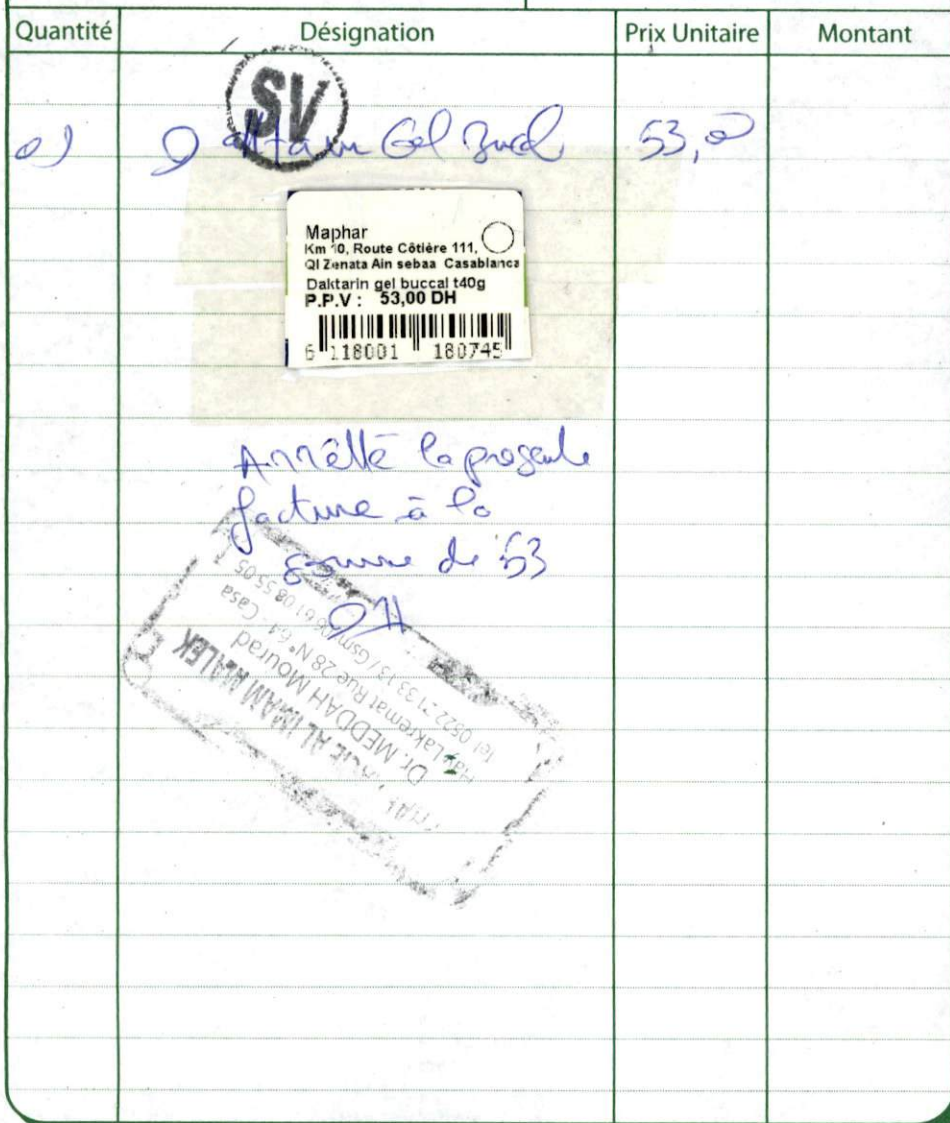 Quantité Désignation Prix Unitaire Montant
SV
01 Daktarin Gel Buccal 53,00
Maphar
Km 10, Route Côtière 111,
QI Zenata Ain sebaa Casablanca
Daktarin gel buccal t40g
P.P.V : 53,00 DH
6 118001 180745
Arrêtté la présente
facture à la
somme de 53
DH
AL IMAM MALEK
Dr. MEDDAH Mourad
Hay Lakremat Rue 28 N° 64 - Casa
Tel 0522 71 33 13 / Gsm 06 61 08 55 05